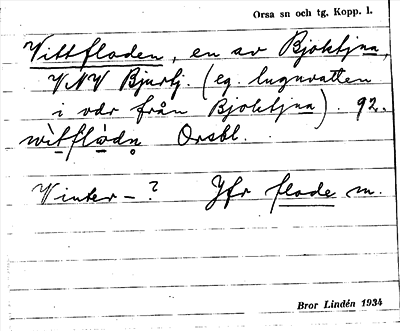 Orsa sn och tg. Kopp. l.
Vittfloden, en av Bjoktjna,
VNV Bjurtj. (eg. lugnvatten
i vdr från Bjoktjna). 92.
witflådn Orsbl.
Vinter-? Jfr flode m.
Bror Lindén 1934